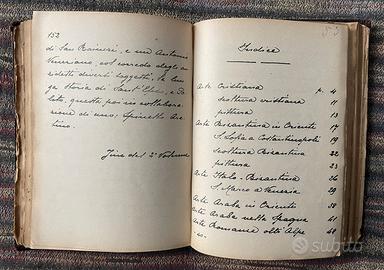 152
di San Ranieri, e un Antonio
Veneziano, col corredo degli a-
ridotti diversi soggetti, la lun-
ga storia di Sant'Efisio, a Pi-
questa poi in collabora-
zione di uno, Spinello Are-
tino.
Fine del 2º Volume
Indice
Arte Cristiana p. 4
scultura cristiana 11
pittura 13
Arte Bizantina in Oriente 17
S. Sofia a Costantinopoli 19
scultura Bizantina 22
pittura 23
Arte Italo-Bizantina 26
S. Marco a Venezia 29
Arte Araba in Oriente 38
Arte Araba nella Spagna 41
Arte Romanica olt'Alpe 48
subito